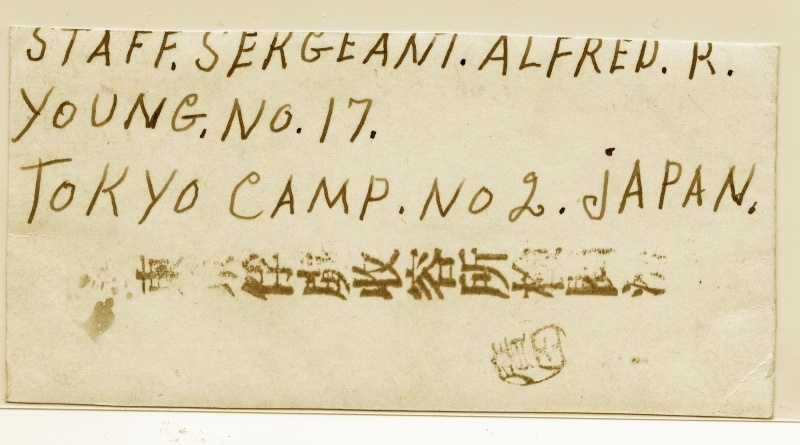 STAFF. SERGEANT. ALFRED. R.
YOUNG. NO. 17.
TOKYO CAMP. NO 2. JAPAN.
俘虜收容所